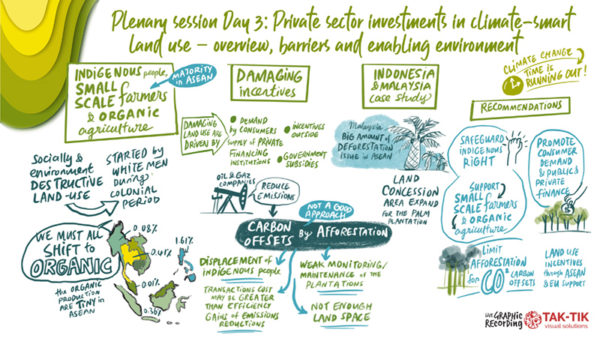 Plenary session Day 3: Private sector investments in climate-smart
land use – overview, barriers and enabling environment
CLIMATE CHANGE
TIME IS
RUNNING OUT!
INDIGENOUS people,
SMALL
SCALE farmers
& ORGANIC
agriculture
MAJORITY
IN ASEAN
Socially &
environment
DESTRUCTIVE
LAND-USE
STARTED BY
WHITE MEN
DURING
COLONIAL
PERIOD
WE MUST ALL
SHIFT to
ORGANIC
the ORGANIC
PRODUCTION
ARE TINY in
ASEAN
0.08%
1.61%
0.01%
0.36%
DAMAGING
incentives
DAMAGING
LAND USE ARE
DRIVEN BY:
DEMAND
BY CONSUMERS
SUPPLY OF PRIVATE
FINANCING
INSTITUTIONS
INCENTIVES
OUTSIDE
GOVERNMENT
SUBSIDIES
OIL & GAZ
COMPANIES
REDUCE
EMISSIONS
NOT A GOOD
APPROACH
CARBON
OFFSETS By AFFORESTATION
DISPLACEMENT OF
INDIGENOUS people
TRANSACTIONS COST
MAY BE GREATER
THAN EFFICIENCY
GAINS OF EMISSIONS
REDUCTIONS
WEAK MONITORING/
MAINTENANCE OF THE
PLANTATIONS
NOT ENOUGH
LAND SPACE
INDONESIA
& MALAYSIA
case study
Malaysia
BIG AMOUNT of
DEFORESTATION
ISSUE in ASEAN
LAND
CONCESSION
AREA EXPAND
FOR THE PALM
PLANTATION
RECOMMENDATIONS
SAFEGUARD
INDIGENOUS
RIGHT
SUPPORT
SMALL SCALE
farmers
& ORGANIC
agriculture
LIMIT
AFFORESTATION
for CO2 CARBON
OFFSETS
PROMOTE
CONSUMER
DEMAND
& PUBLIC &
PRIVATE
FINANCE
LAND USE
INCENTIVES
through ASEAN
& EU SUPPORT
LIVE GRAPHIC
RECORDING
TAK-TIK
visual solutions